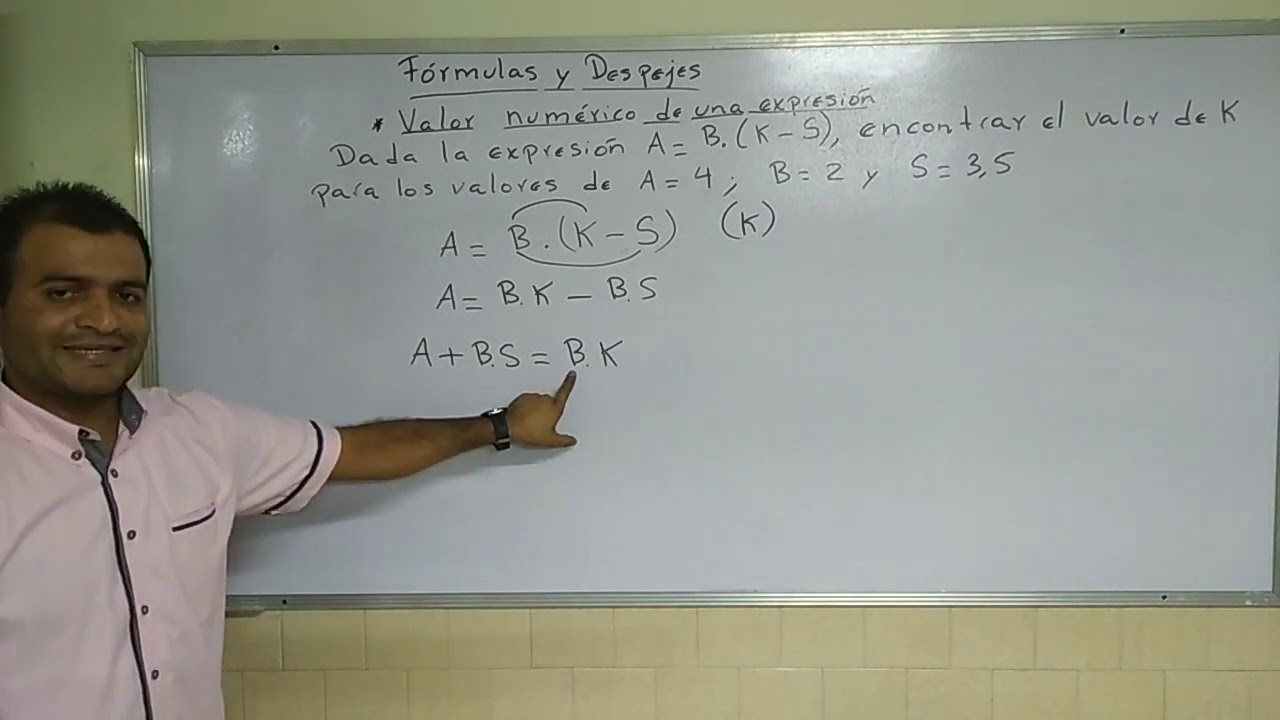 Fórmulas y Despejes
* Valor numérico de una expresión
Dada la expresión A = B.(K-S), encontrar el valor de K
para los valores de A = 4; B = 2 y S = 3,5
A = B.(K-S) (K)
A = B.K - B.S
A + B.S = B.K